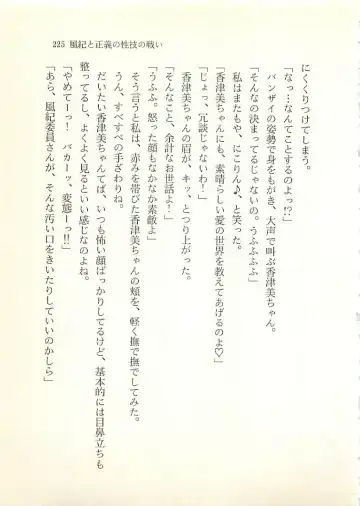 225 風紀と正義の性技の戦い
にくくりつけてしまう。
「なっ…なんてことするのよっ!?」
バンザイの姿勢で身をもがき、大声で叫ぶ香津美ちゃん。
「そんなの決まってるじゃないの。うふふふふ」
私はまたもや、にこりん♪、と笑った。
「香津美ちゃんにも、素晴らしい愛の世界を教えてあげるのよ♡」
「じょっ、冗談じゃないわ!」
香津美ちゃんの眉が、キッ、とつり上がった。
「そんなこと、余計なお世話よ!」
「うふふ。怒った顔もなかなか素敵よ」
そう言うと私は、赤みを帯びた香津美ちゃんの頬を、軽く撫で撫でしてみた。
うん、すべすべの手ざわりね。
だいたい香津美ちゃんてば、いつも怖い顔ばっかりしてるけど、基本的には目鼻立ちも
整ってるし、よくよく見るといい感じなのよね。
「やめてーっ! バカーッ、変態ーっ!!」
「あら、風紀委員さんが、そんな汚い口をきいたりしていいのかしら」